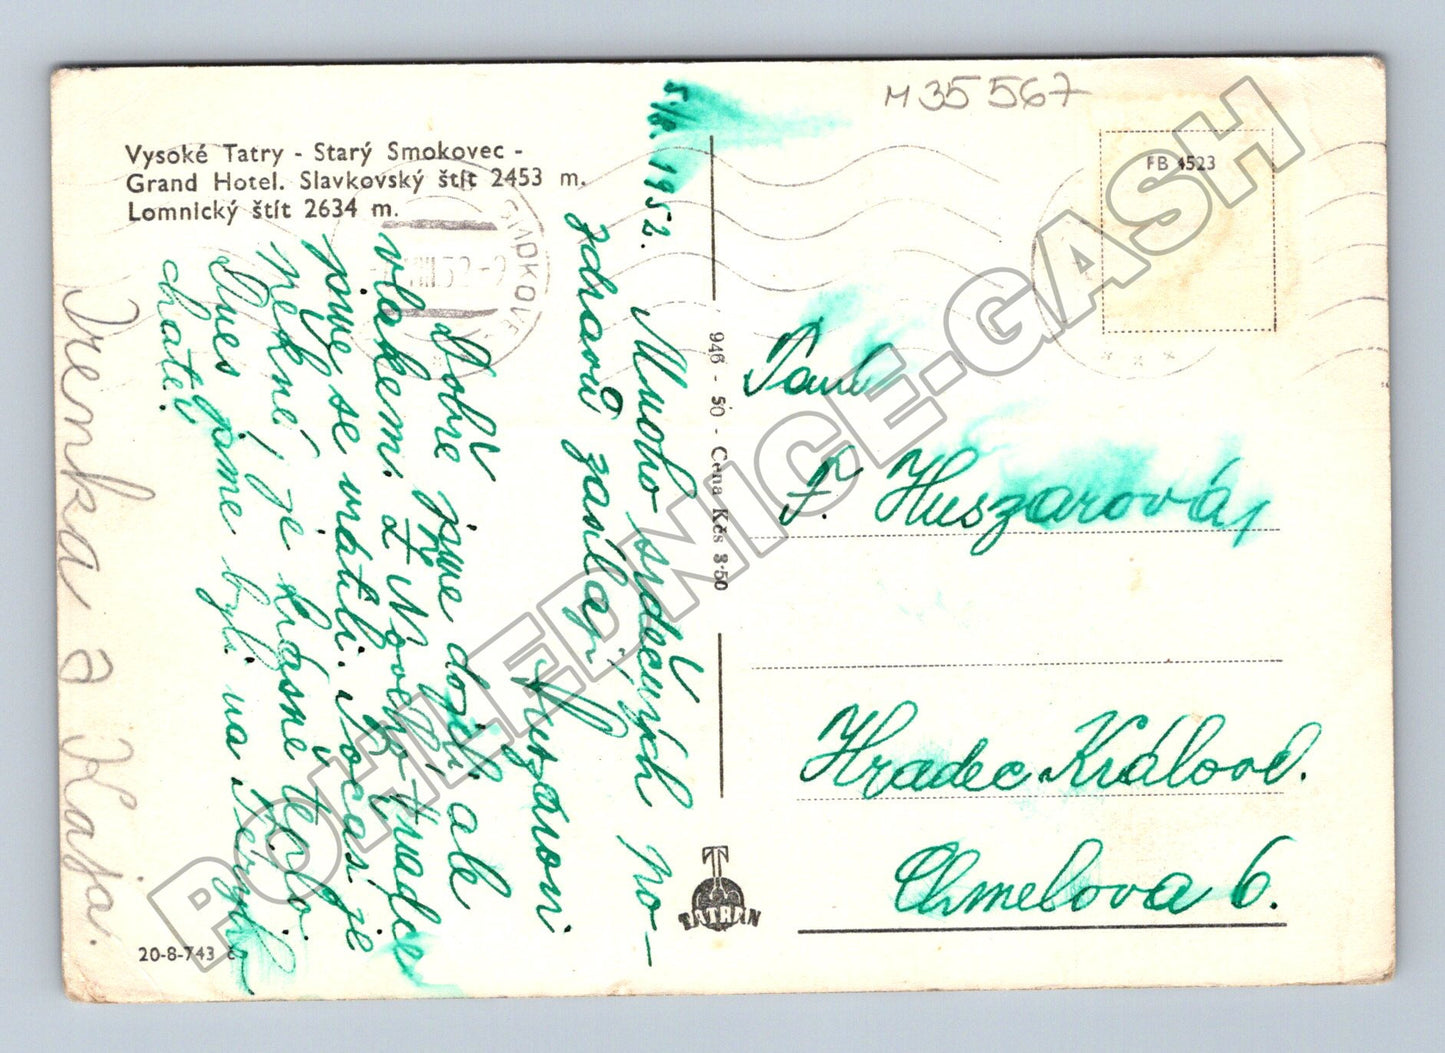 M 35 567
Vysoké Tatry - Starý Smokovec -
Grand Hotel. Slavkovský štít 2453 m.
Lomnický štít 2634 m.
FB 4523
SMOKOVEC
5/8. 1952.
Mnoho srdečných po-
zdravů zasílají
Huszárovi
Dobře jsme dojeli ale
vlakem. Z Nového Hradce
jsme se vrátili. Počasí je
pěkné, je krásné teplo.
Dnes jsme byli na
chatě.
Irenka a Kaja.
946 - 50 - Cena Kčs 3·50
Paní
F. Huszarová,
Hradec Králové.
Chmelova 6.
TATRAN
20-8-743
POHLEDNICE-GASH